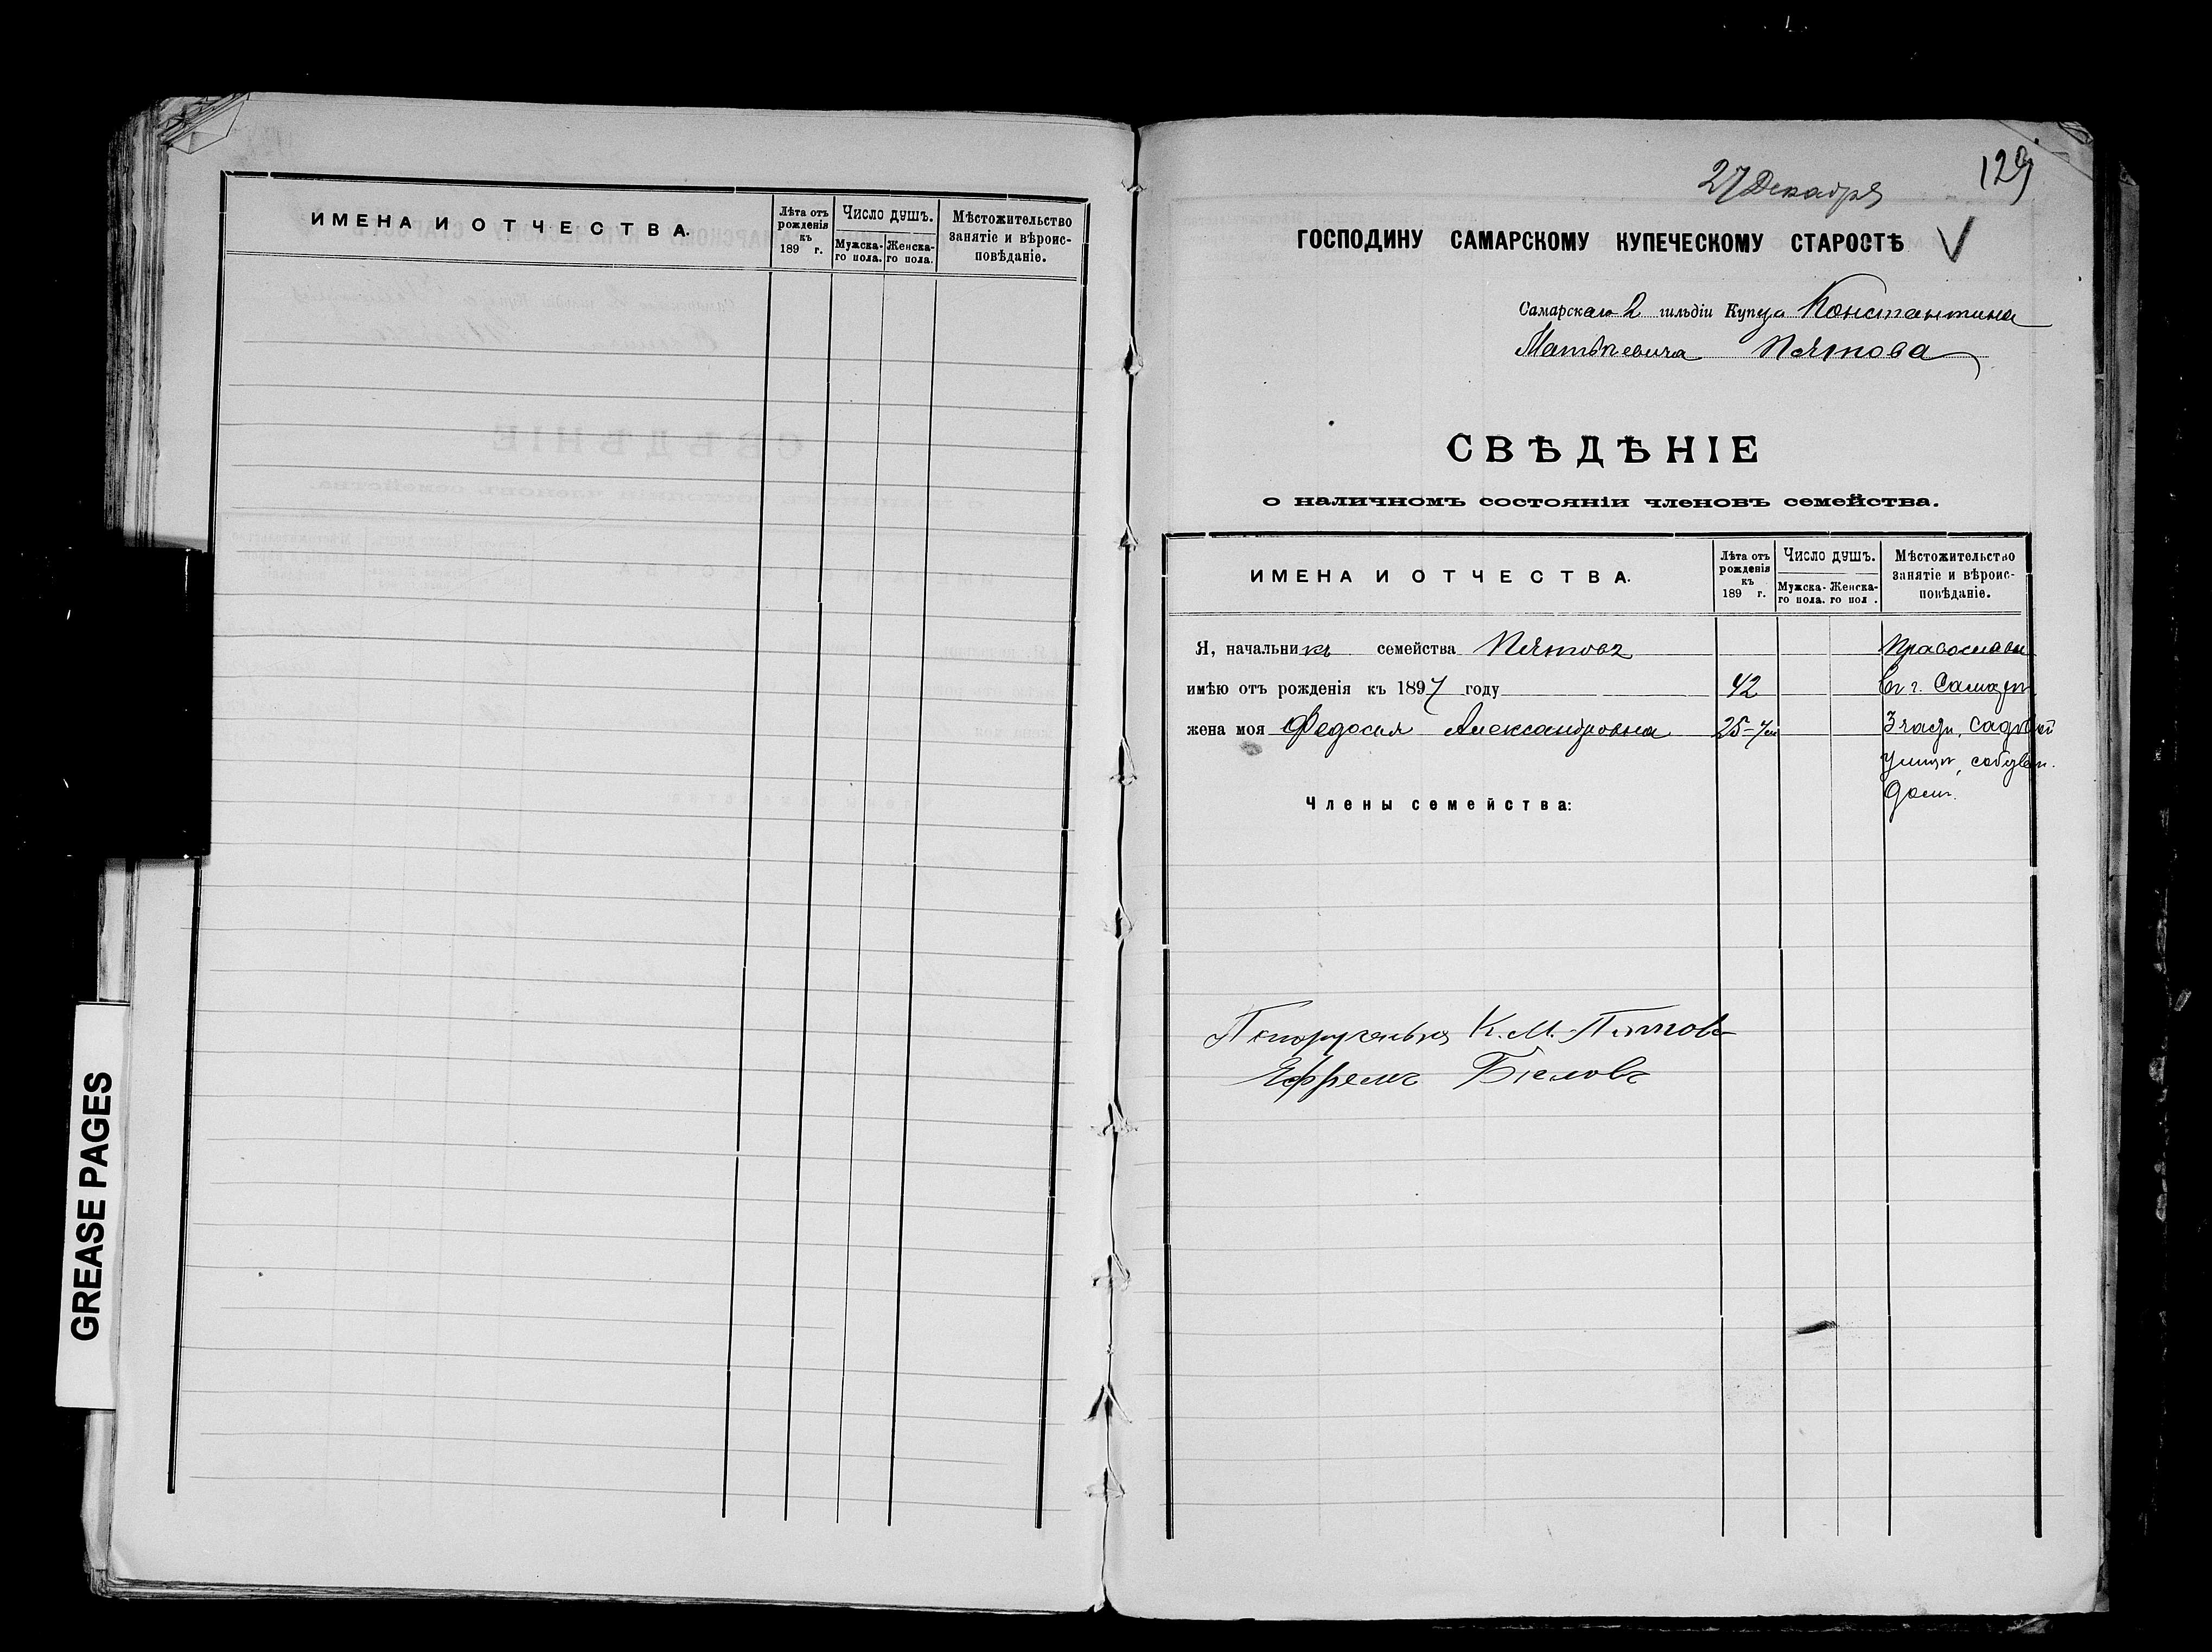 ИМЕНА И ОТЧЕСТВА.
Лѣта отъ рожденія къ 189 г.
Число душъ.
Мужска-го пола.
Женска-го пола.
Мѣстожительство занятіе и вѣроис-повѣданіе.
GREASE PAGES
27 Декабря
129
ГОСПОДИНУ САМАРСКОМУ КУПЕЧЕСКОМУ СТАРОСТѢ V
Самарскаго 2 гильдіи Купца Константина
Матвѣевича Пятова
СВѢДѢНІЕ
о наличномъ состояніи членовъ семейства.
ИМЕНА И ОТЧЕСТВА.
Лѣта отъ рожденія къ 189 г.
Число душъ.
Мужска-го пола.
Женска-го пол .
Мѣстожительство занятіе и вѣроис-повѣданіе.
Я, начальникъ семейства Пятовъ Православн
имѣю отъ рожденія къ 1897 году 42 въ г. Самарѣ
жена моя Федосия Александровна 25 3 части, садовой
улицѣ, собствен.
домъ.
Члены семейства:
К. М. Пятовъ
Ефремъ Беловъ